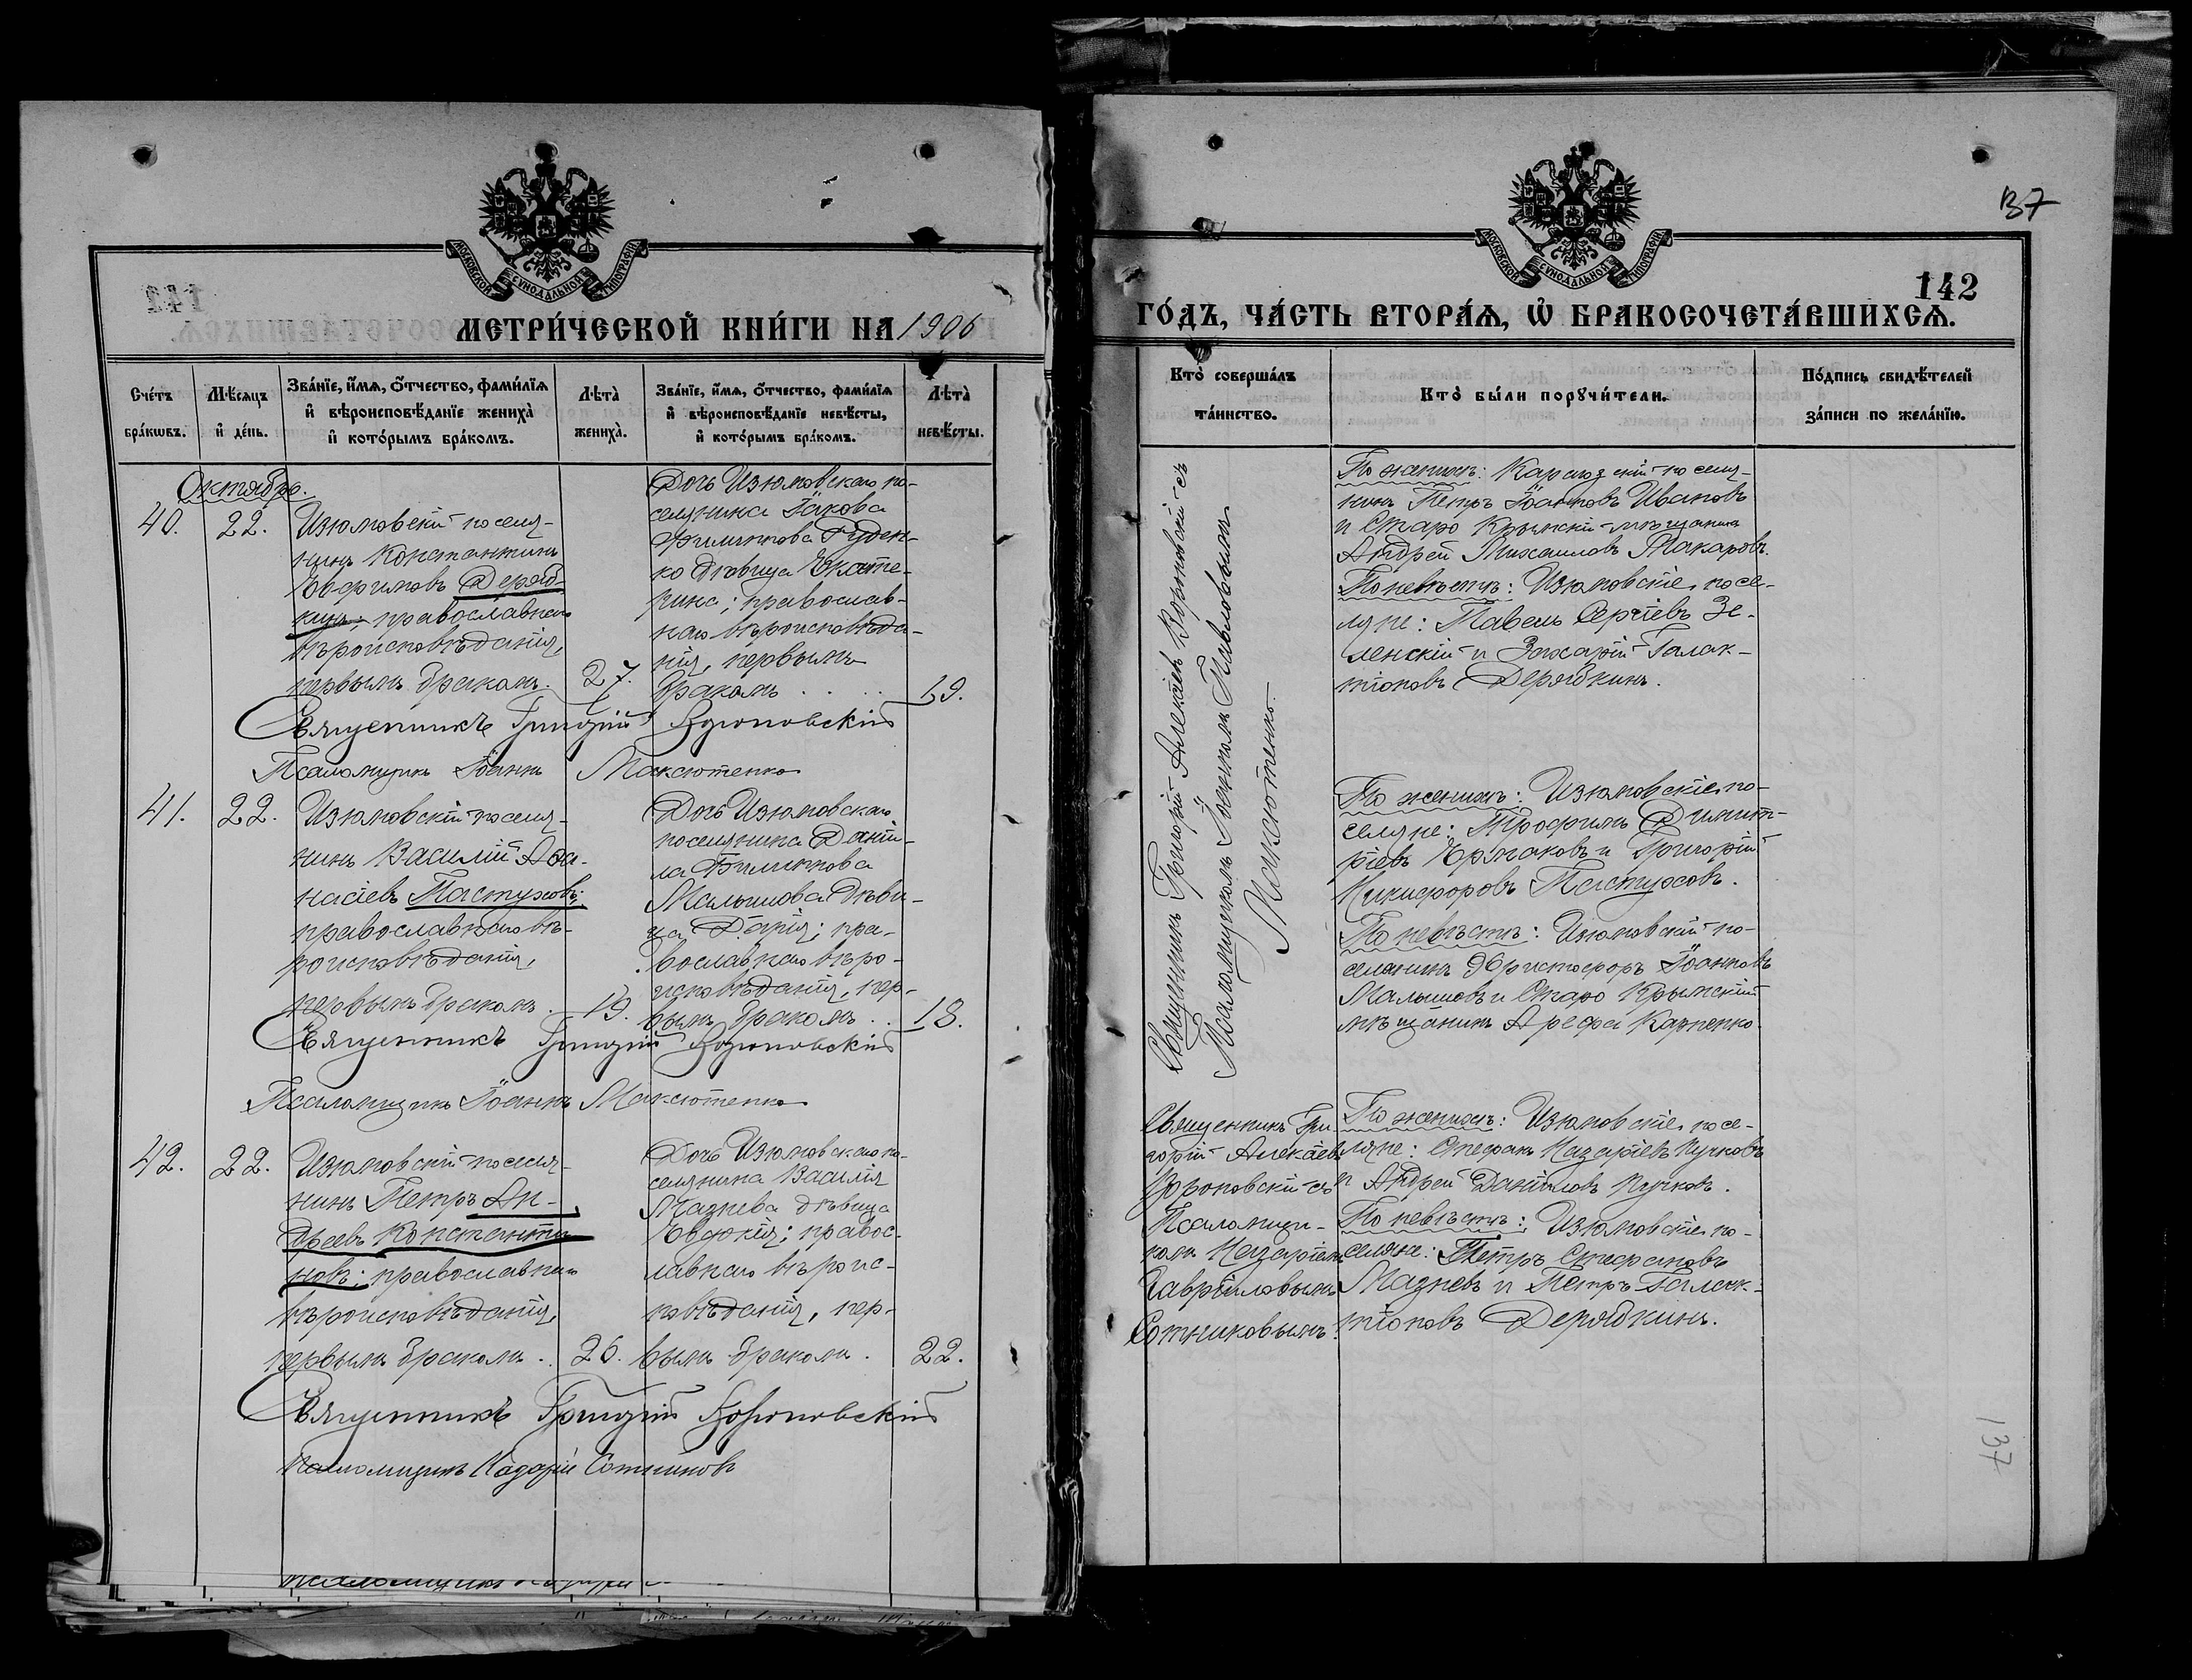 МОСКОВСКОЙ СУНОДАЛЬНОЙ ТИПОГРАФІИ
МЕТРИ́ЧЕСКОЙ КНИ́ГИ НА 1906
Сче́тъ бра́кωвъ.
Мѣ́сяцъ и҆ де́нь.
Зва́нїе, и҆́мѧ, ѻ҆́тчество, фами́лїѧ
и҆ вѣроисповѣ́данїе жениха̀
и҆ кото́рымъ бра́комъ.
Лѣта̀ жениха̀.
Зва́нїе, и҆́мѧ, ѻ҆́тчество, фами́лїѧ
и҆ вѣроисповѣ́данїе невѣ́сты,
и҆ кото́рымъ бра́комъ.
Лѣта̀ невѣ́сты.
Октябрь.
40.
22.
Изюмовскій поселя-
нинъ Константинъ
Ефимовъ Деряб-
кинъ; православнаго
вѣроисповѣданія,
первымъ бракомъ.
27.
Дочь Изюмовскаго по-
селянина Іакова
Филиппова Руден-
ко дѣвица Екате-
рина; православ-
наго вѣроисповѣда-
нія, первымъ
бракомъ . . . .
19.
Священникъ Григорій Вороновскій
Псаломщикъ Іоаннъ Максютенко
41.
22.
Изюмовскій поселя-
нинъ Василій Афа-
насіевъ Пастуховъ;
православнаго вѣ-
роисповѣданія,
первымъ бракомъ.
19.
Дочь Изюмовскаго
поселянина Даніи-
ла Филиппова
Малышова дѣви-
ца Дарія; пра-
вославнаго вѣро-
исповѣданія, пер-
вымъ бракомъ . .
18.
Священникъ Григорій Вороновскій
Псаломщикъ Іоаннъ Максютенко
42.
22.
Изюмовскій поселя-
нинъ Петръ Ан-
дреевъ Константи-
новъ; православнаго
вѣроисповѣданія,
первымъ бракомъ .
26.
Дочь Изюмовскаго по-
селянина Василія
Мазнева дѣвица
Евдокія; правос-
лавнаго вѣроис-
повѣданія, пер-
вымъ бракомъ .
22.
Священникъ Григорій Вороновскій
Псаломщикъ Назарій Сотниковъ
137
МОСКОВСКОЙ СУНОДАЛЬНОЙ ТИПОГРАФІИ
142
ГО́ДЪ, ЧА́СТЬ ВТОРА́Ѧ, Ѽ БРАКОСОЧЕТА́ВШИХСѦ.
Кто̀ соверша́лъ
та́инство.
Кто̀ бы́ли порꙋчи́тели.
По́дпись свидѣ́телей
за́писи по жела́нїю.
Священникъ Григорій Алексіевъ Вороновскій съ
Псаломщикомъ Іоанномъ Павловымъ
Максютенко.
По женихѣ: Карагозскій поселя-
нинъ Петръ Іоанновъ Ивановъ
и Старо Крымскій мѣщанинъ
Андрей Михаиловъ Макаровъ.
По невѣстѣ: Изюмовскіе посе-
ляне: Павелъ Сергіевъ Зе-
ленскій и Захарій Галак-
тіоновъ Дерябкинъ.
По женихѣ: Изюмовскіе по-
селяне: Трофимъ Димит-
ріевъ Ермаковъ и Григорій
Никифоровъ Пастуховъ.
По невѣстѣ: Изюмовскій по-
селянинъ Христофоръ Іоанновъ
Малышовъ и Старо Крымскій
мѣщанинъ Арефа
Священникъ Гри-
горій Алексіевъ
Вороновскій съ
Псаломщи-
комъ Назаріемъ
Гавріиловымъ
Сотниковымъ.
По женихѣ: Изюмовскіе посе-
ляне: Стефанъ Назаріевъ Пучковъ
и Андрей Даніиловъ Пучковъ.
По невѣстѣ: Изюмовскіе по-
селяне: Петръ Стефановъ
Мазневъ и Петръ Галак-
тіоновъ Дерябкинъ.
137